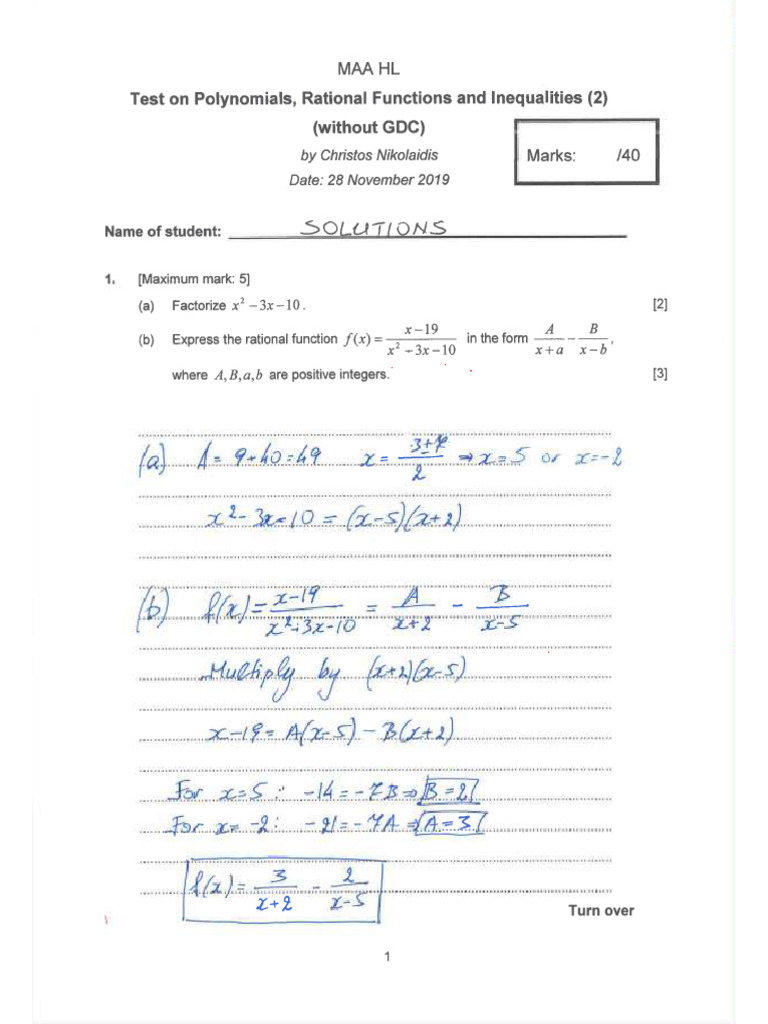 MAA HL
Test on Polynomials, Rational Functions and Inequalities (2)
(without GDC)
by Christos Nikolaidis
Marks: /40
Date: 28 November 2019
Name of student: SOLUTIONS
1. [Maximum mark: 5]
(a) Factorize x² − 3x − 10 . [2]
(b) Express the rational function f(x) = (x − 19)/(x² − 3x − 10) in the form A/(x + a) − B/(x − b) ,
where A, B, a, b are positive integers. [3]
(a) Δ = 9 + 40 = 49 x = (3±7)/2 ⇒ x = 5 or x = −2
x² − 3x − 10 = (x − 5)(x + 2)
(b) f(x) = (x − 19)/(x² − 3x − 10) = A/(x + 2) − B/(x − 5)
Multiply by (x + 2)(x − 5)
x − 19 = A(x − 5) − B(x + 2)
For x = 5 : −14 = −7B ⇒ B = 2
For x = −2 : −21 = −7A ⇒ A = 3
f(x) = 3/(x + 2) − 2/(x − 5)
Turn over
1